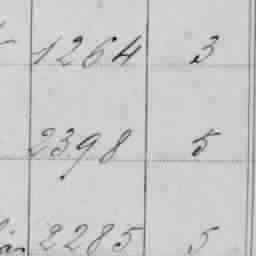 1264 3
2398 5
2285 5